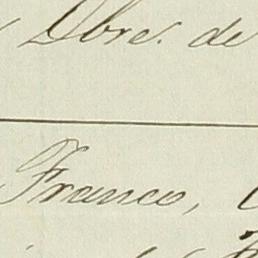 Dbre. de
Franco,